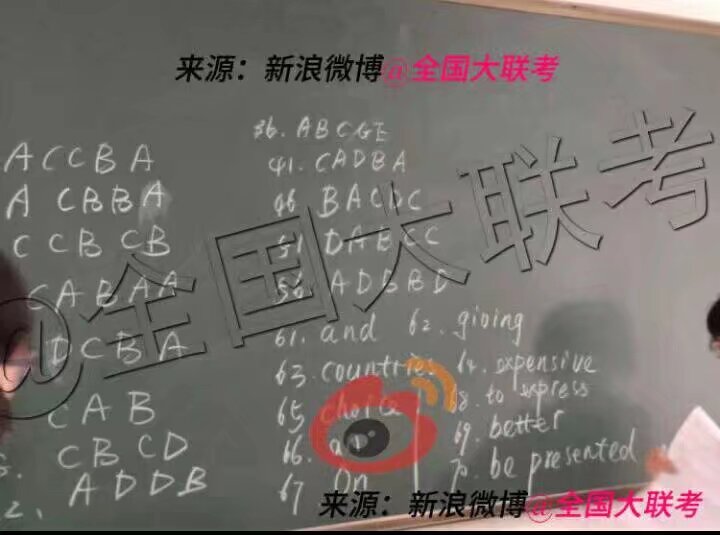 来源：新浪微博@全国大联考
ACCBA
ACBBA
CCBCB
CABAA
DCBA
CAB
CBCD
2、ADDB
36. ABCGE
41. CADBA
46 BACDC
51 DABCC
56. ADBBD
61. and 62. giving
63. countries 64. expensive
65 choice 68. to express
66. 69. better
67 on 70. be presented
@全国大联考
来源：新浪微博@全国大联考